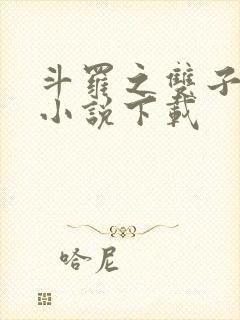 斗羅之雙子
小說下載
哈尼